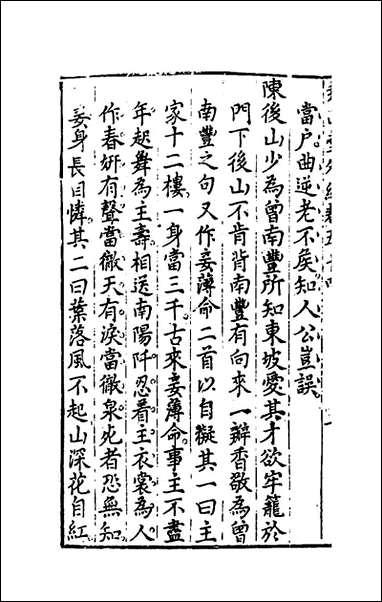 當户曲逆老不矦知人公豈誤
陳後山少為曾南豐所知東坡愛其才欲牢籠於
門下後山不肯背南豐有向來一瓣香敬為曾
南豐之句又作妾薄命二首以自擬其一曰主
家十二樓一身當三千古來妾薄命事主不盡
年起舞為主壽相送南陽阡忍看主衣裳為人
作春妍有聲當徹天有淚當徹泉死者恐無知
妾身長自憐其二曰葉落風不起山深花自紅